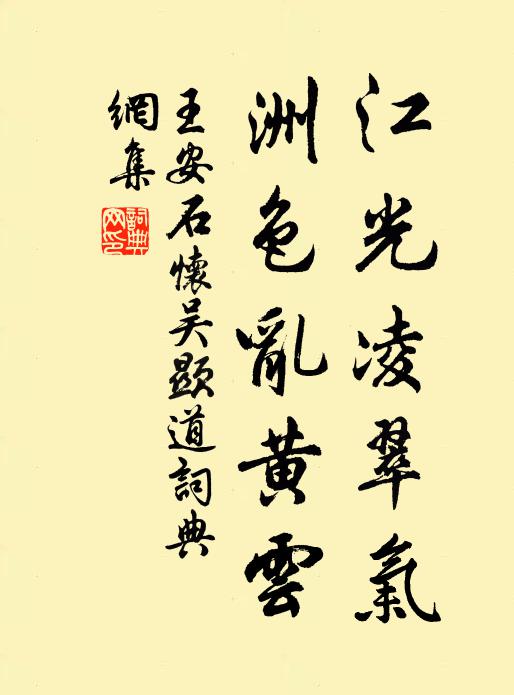 江光凌翠氣
洲色亂黃雲
王安石懷吴顯道詞典
網集
詞典
网印